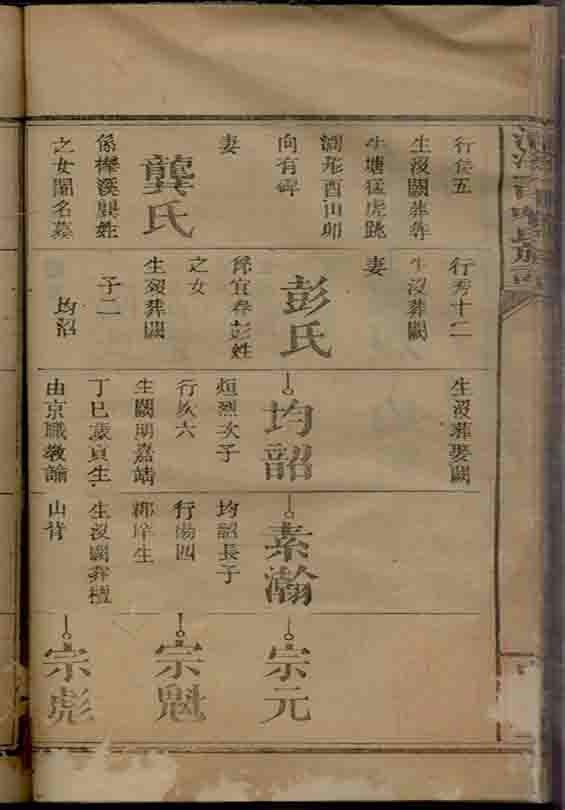 行侯五
生沒闕葬
生塘猛虎跳
澗形酉山卯
向有碑
妻
龔氏
係櫸溪龔姓
之女閨名葵
行秀十二
生沒葬闕
妻
彭氏
係宜春彭姓
之女
生歿葬闕
子二
均沼
生沒葬娶闕
均韶
烜烈次子
行致六
生闕明嘉靖
丁巳歲貢生
由京職教諭
素瀚
均韶長子
行陽四
郡庠生
生沒闕葬
山背
宗元
宗魁
宗彪